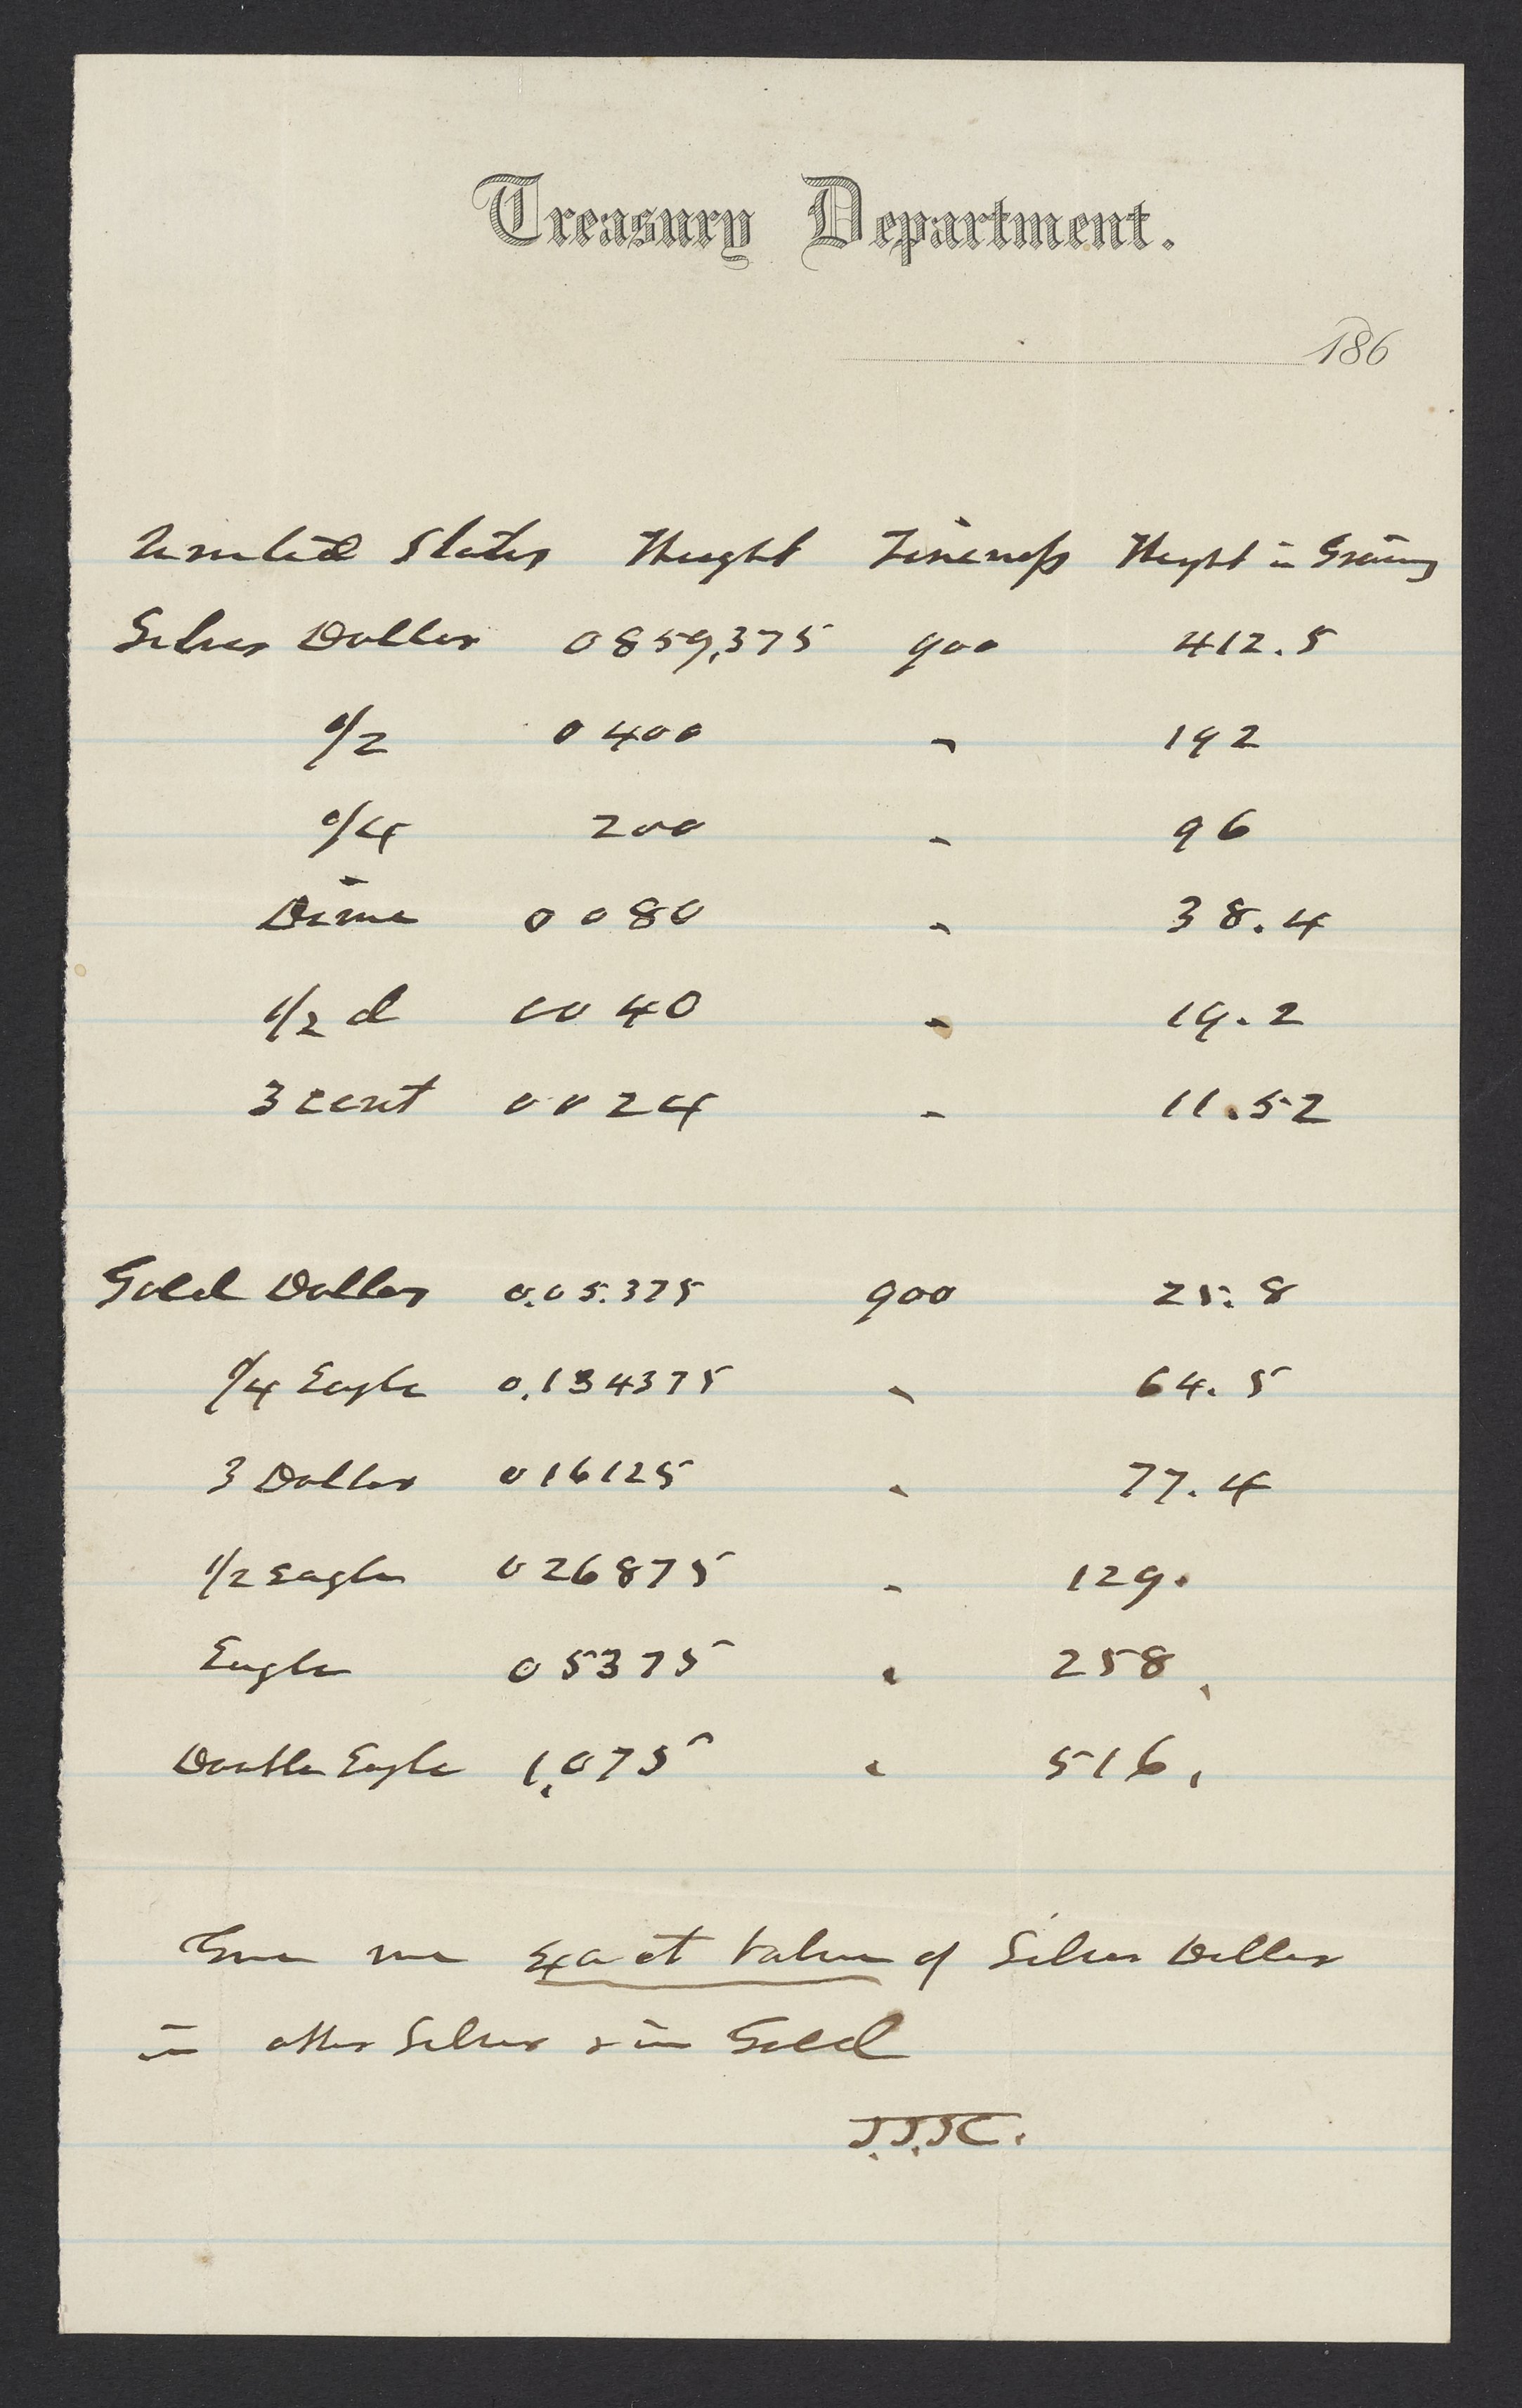 Treasury Department.
186
United States Weight Fineness Weight in Grains
Silver Dollar 0859,375 900 412.5
1/2 0400 " 192
1/4 200 " 96
Dime 0080 " 38.4
1/2 d 0040 " 19.2
3 cent 0024 " 11.52
Gold Dollar 0.05.375 900 25.8
1/4 Eagle 0.134375 " 64.5
3 Dollar 016125 " 77.4
1/2 Eagle 026875 " 129.
Eagle 05375 " 258.
Double Eagle 1.075 " 516.
Give me exact value of Silver Dollar
in other Silver & in Gold
J.J.K.